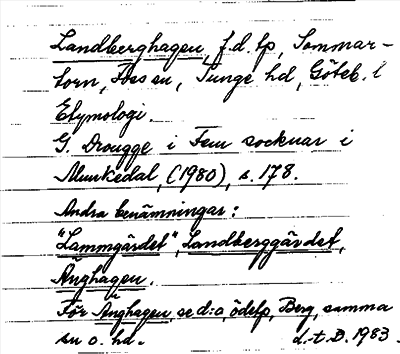 Landberghagen, f.d. tp, Sommar-
torn, Foss sn, Tunge hd, Göteb. l
Etymologi.
G. Drougge i Fem socknar i
Munkedal, (1980), s. 178.
Andra benämningar:
"Lammgärdet", Landberggärdet,
Änghagen.
För Änghagen, se d:o, ödetp, Berg, samma
sn o. hd. L.t.D. 1983.